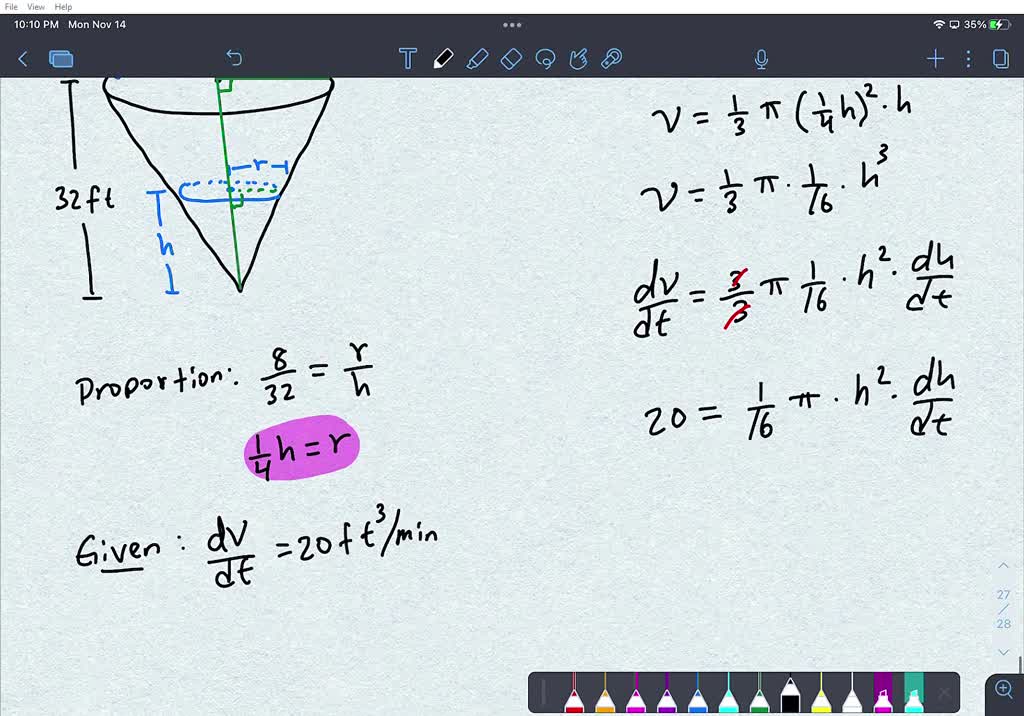 File View Help
10:10 PM Mon Nov 14
35%
T
32ft
r
h
Proportion: 8/32 = r/h
1/4 h = r
Given: dv/dt = 20 ft³/min
v = 1/3 π (1/4 h)² · h
v = 1/3 π · 1/16 · h³
dv/dt = 3/3 π 1/16 · h² · dh/dt
20 = 1/16 π · h² · dh/dt
27
/
28